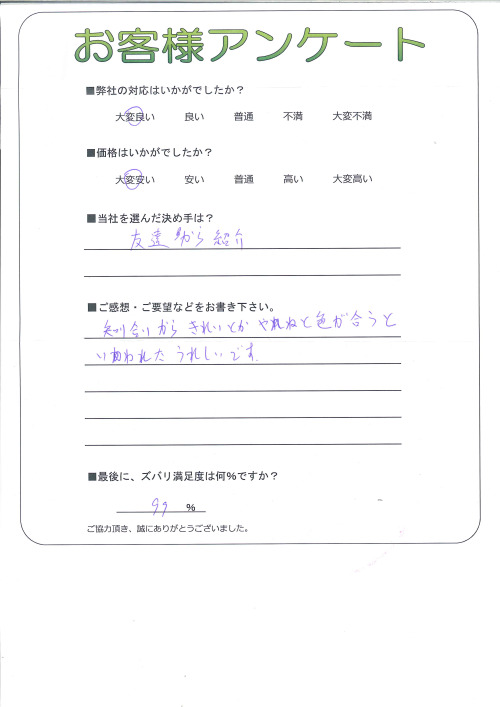 お客様アンケート
■弊社の対応はいかがでしたか？
大変良い 良い 普通 不満 大変不満
■価格はいかがでしたか？
大変安い 安い 普通 高い 大変高い
■当社を選んだ決め手は？
友達から紹介
■ご感想・ご要望などをお書き下さい。
知り合いから きれいとか やねと色が合うと
いわれた うれしいです
■最後に、ズバリ満足度は何％ですか？
99 ％
ご協力頂き、誠にありがとうございました。